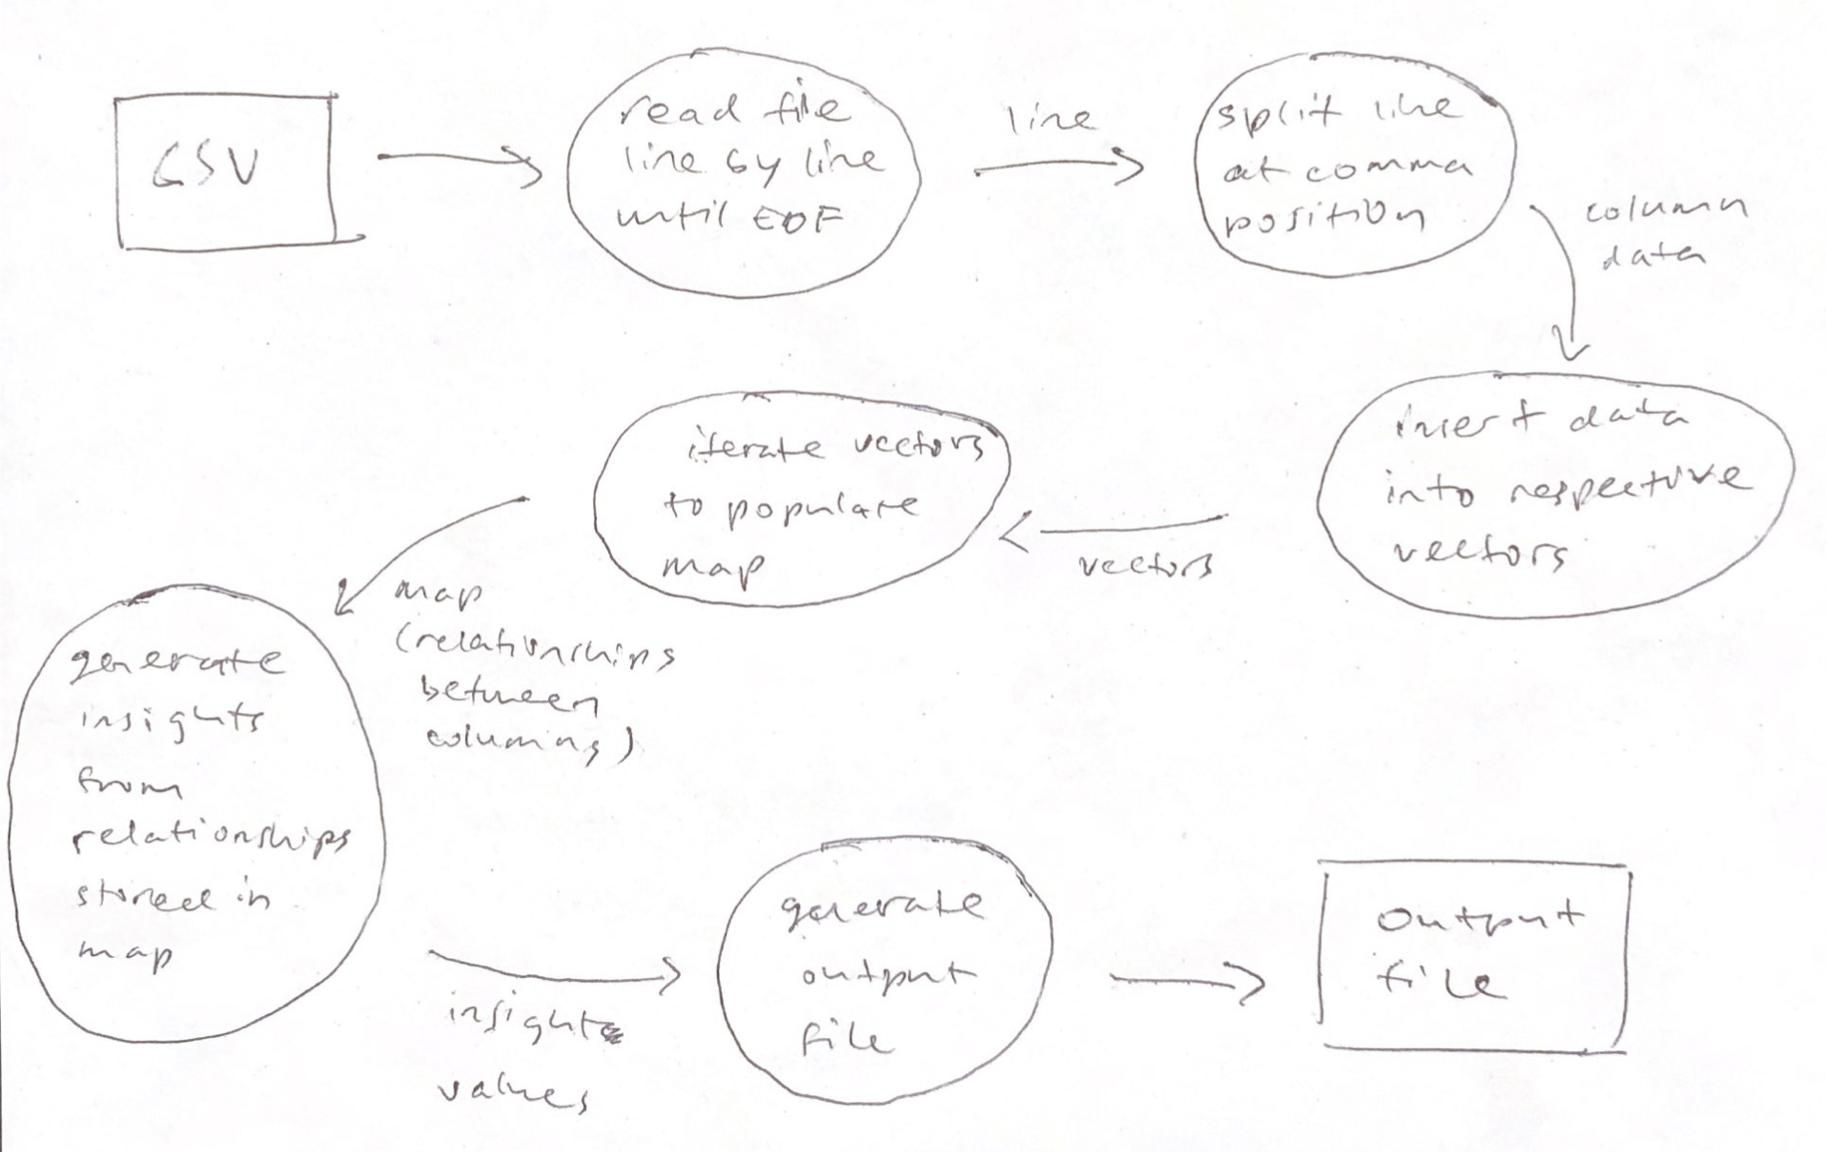 CSV
read file
line by line
until EOF
line
split line
at comma
position
column
data
insert data
into respective
vectors
vectors
iterate vectors
to populate
map
map
(relationships
between
columns)
generate
insights
from
relationships
stored in
map
insights
values
generate
output
file
output
file